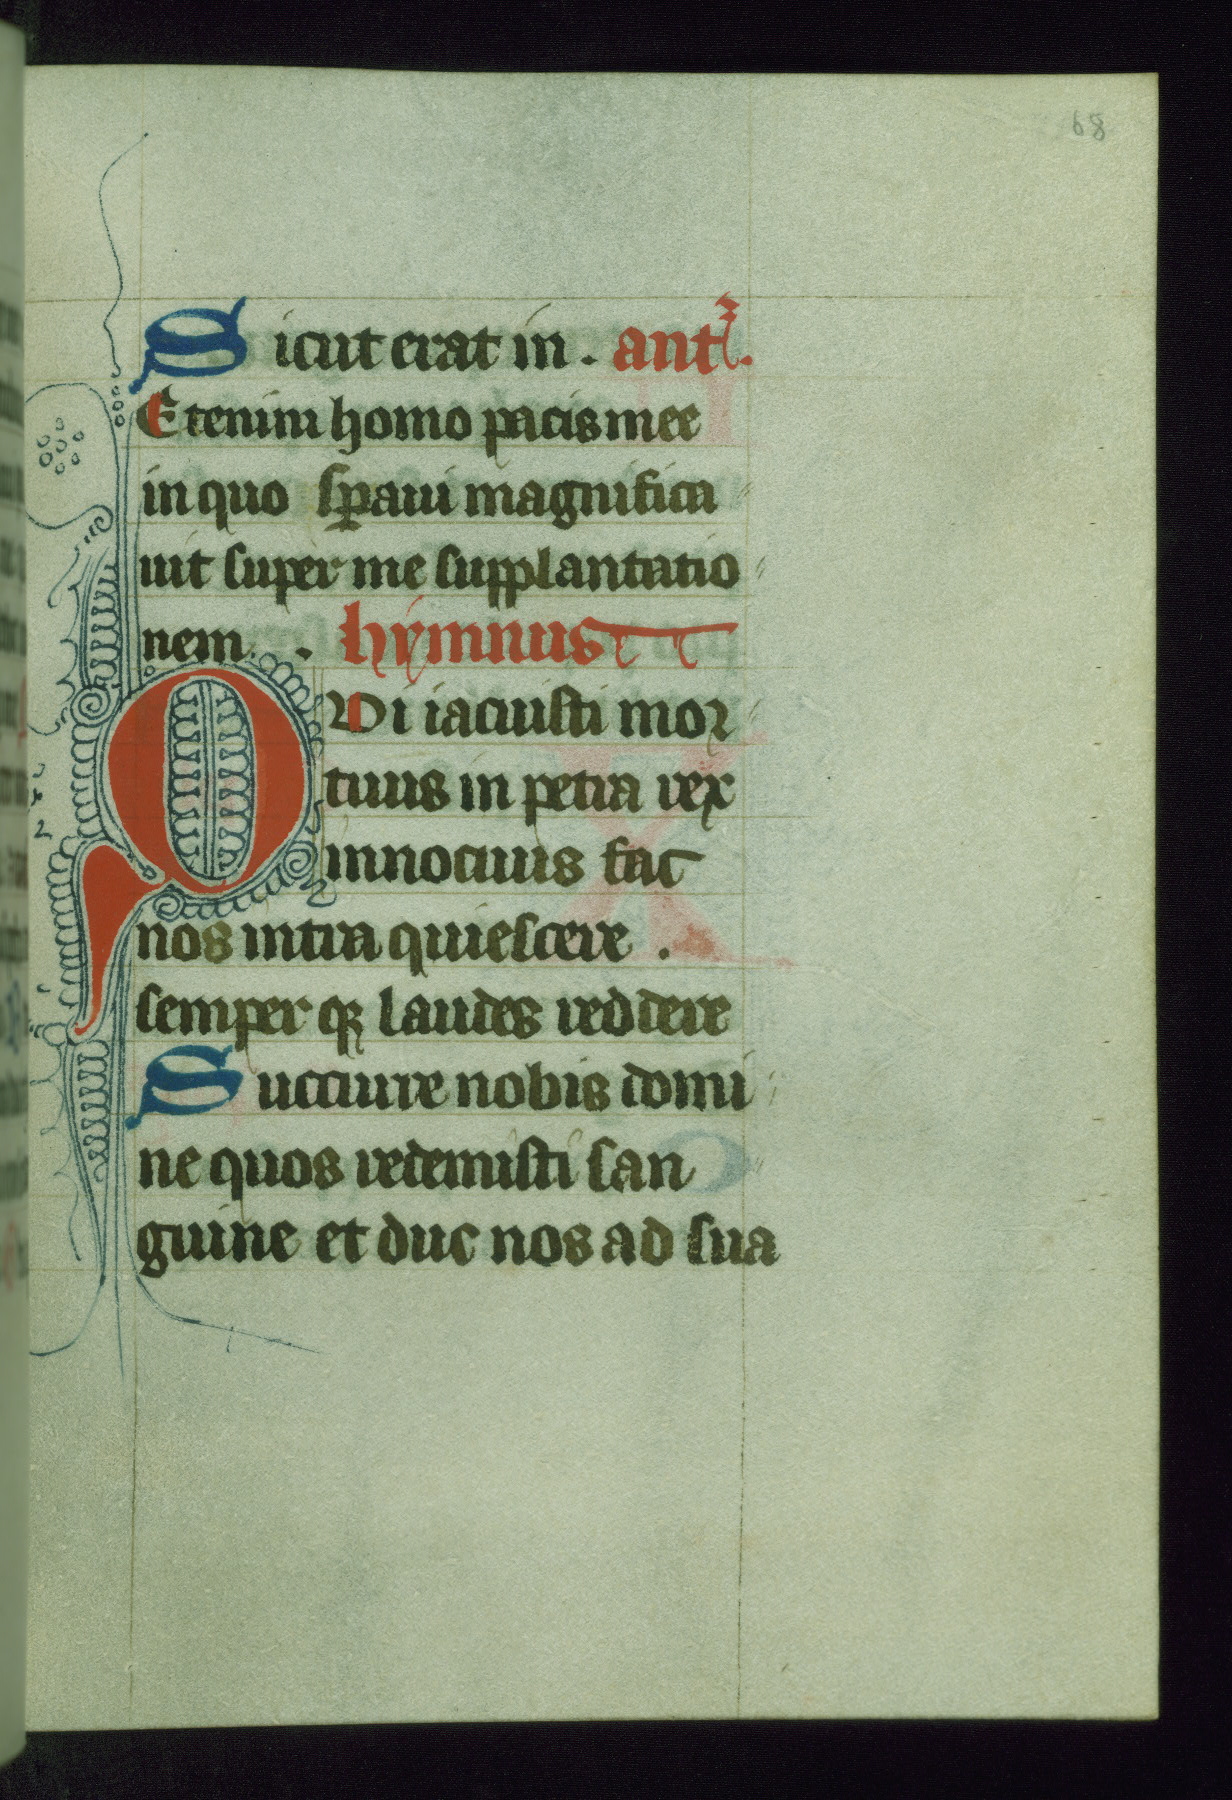 68
Sicut erat in . ant̃.
Etenim homo pacis mee
in quo sꝑaui magnifica
uit super me supplantatio
nem . hymnus
QVi iacuisti mor
tuus in petra rex
innocuus fac
nos intra quiescere .
semper qꝫ laudes reddere
Succurre nobis domi
ne quos redemisti san
guine et duc nos ad sua